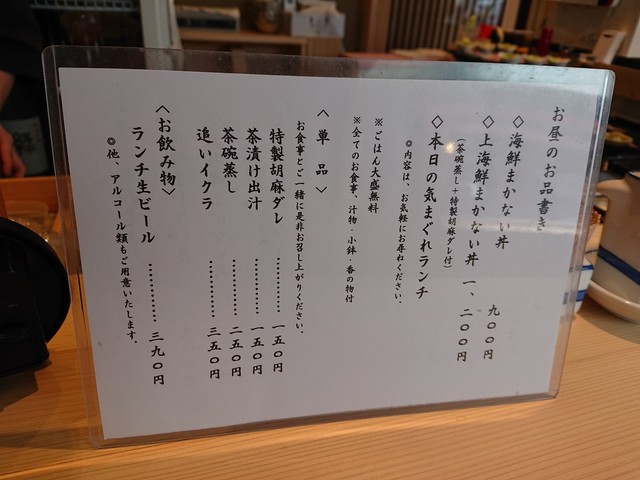 お昼のお品書き
◇海鮮まかない丼 九〇〇円
◇上海鮮まかない丼 一、二〇〇円
(茶碗蒸し+特製胡麻ダレ付)
◇本日の気まぐれランチ
◎内容は、お気軽にお尋ねください。
※ごはん大盛無料
※全てのお食事、汁物・小鉢・香の物付
〈単品〉
お食事とご一緒に是非お召し上がりください。
特製胡麻ダレ…………一五〇円
茶漬け出汁…………一五〇円
茶碗蒸し…………二五〇円
追いイクラ…………三五〇円
〈お飲み物〉
ランチ生ビール…………三九〇円
◎他、アルコール類もご用意いたします。